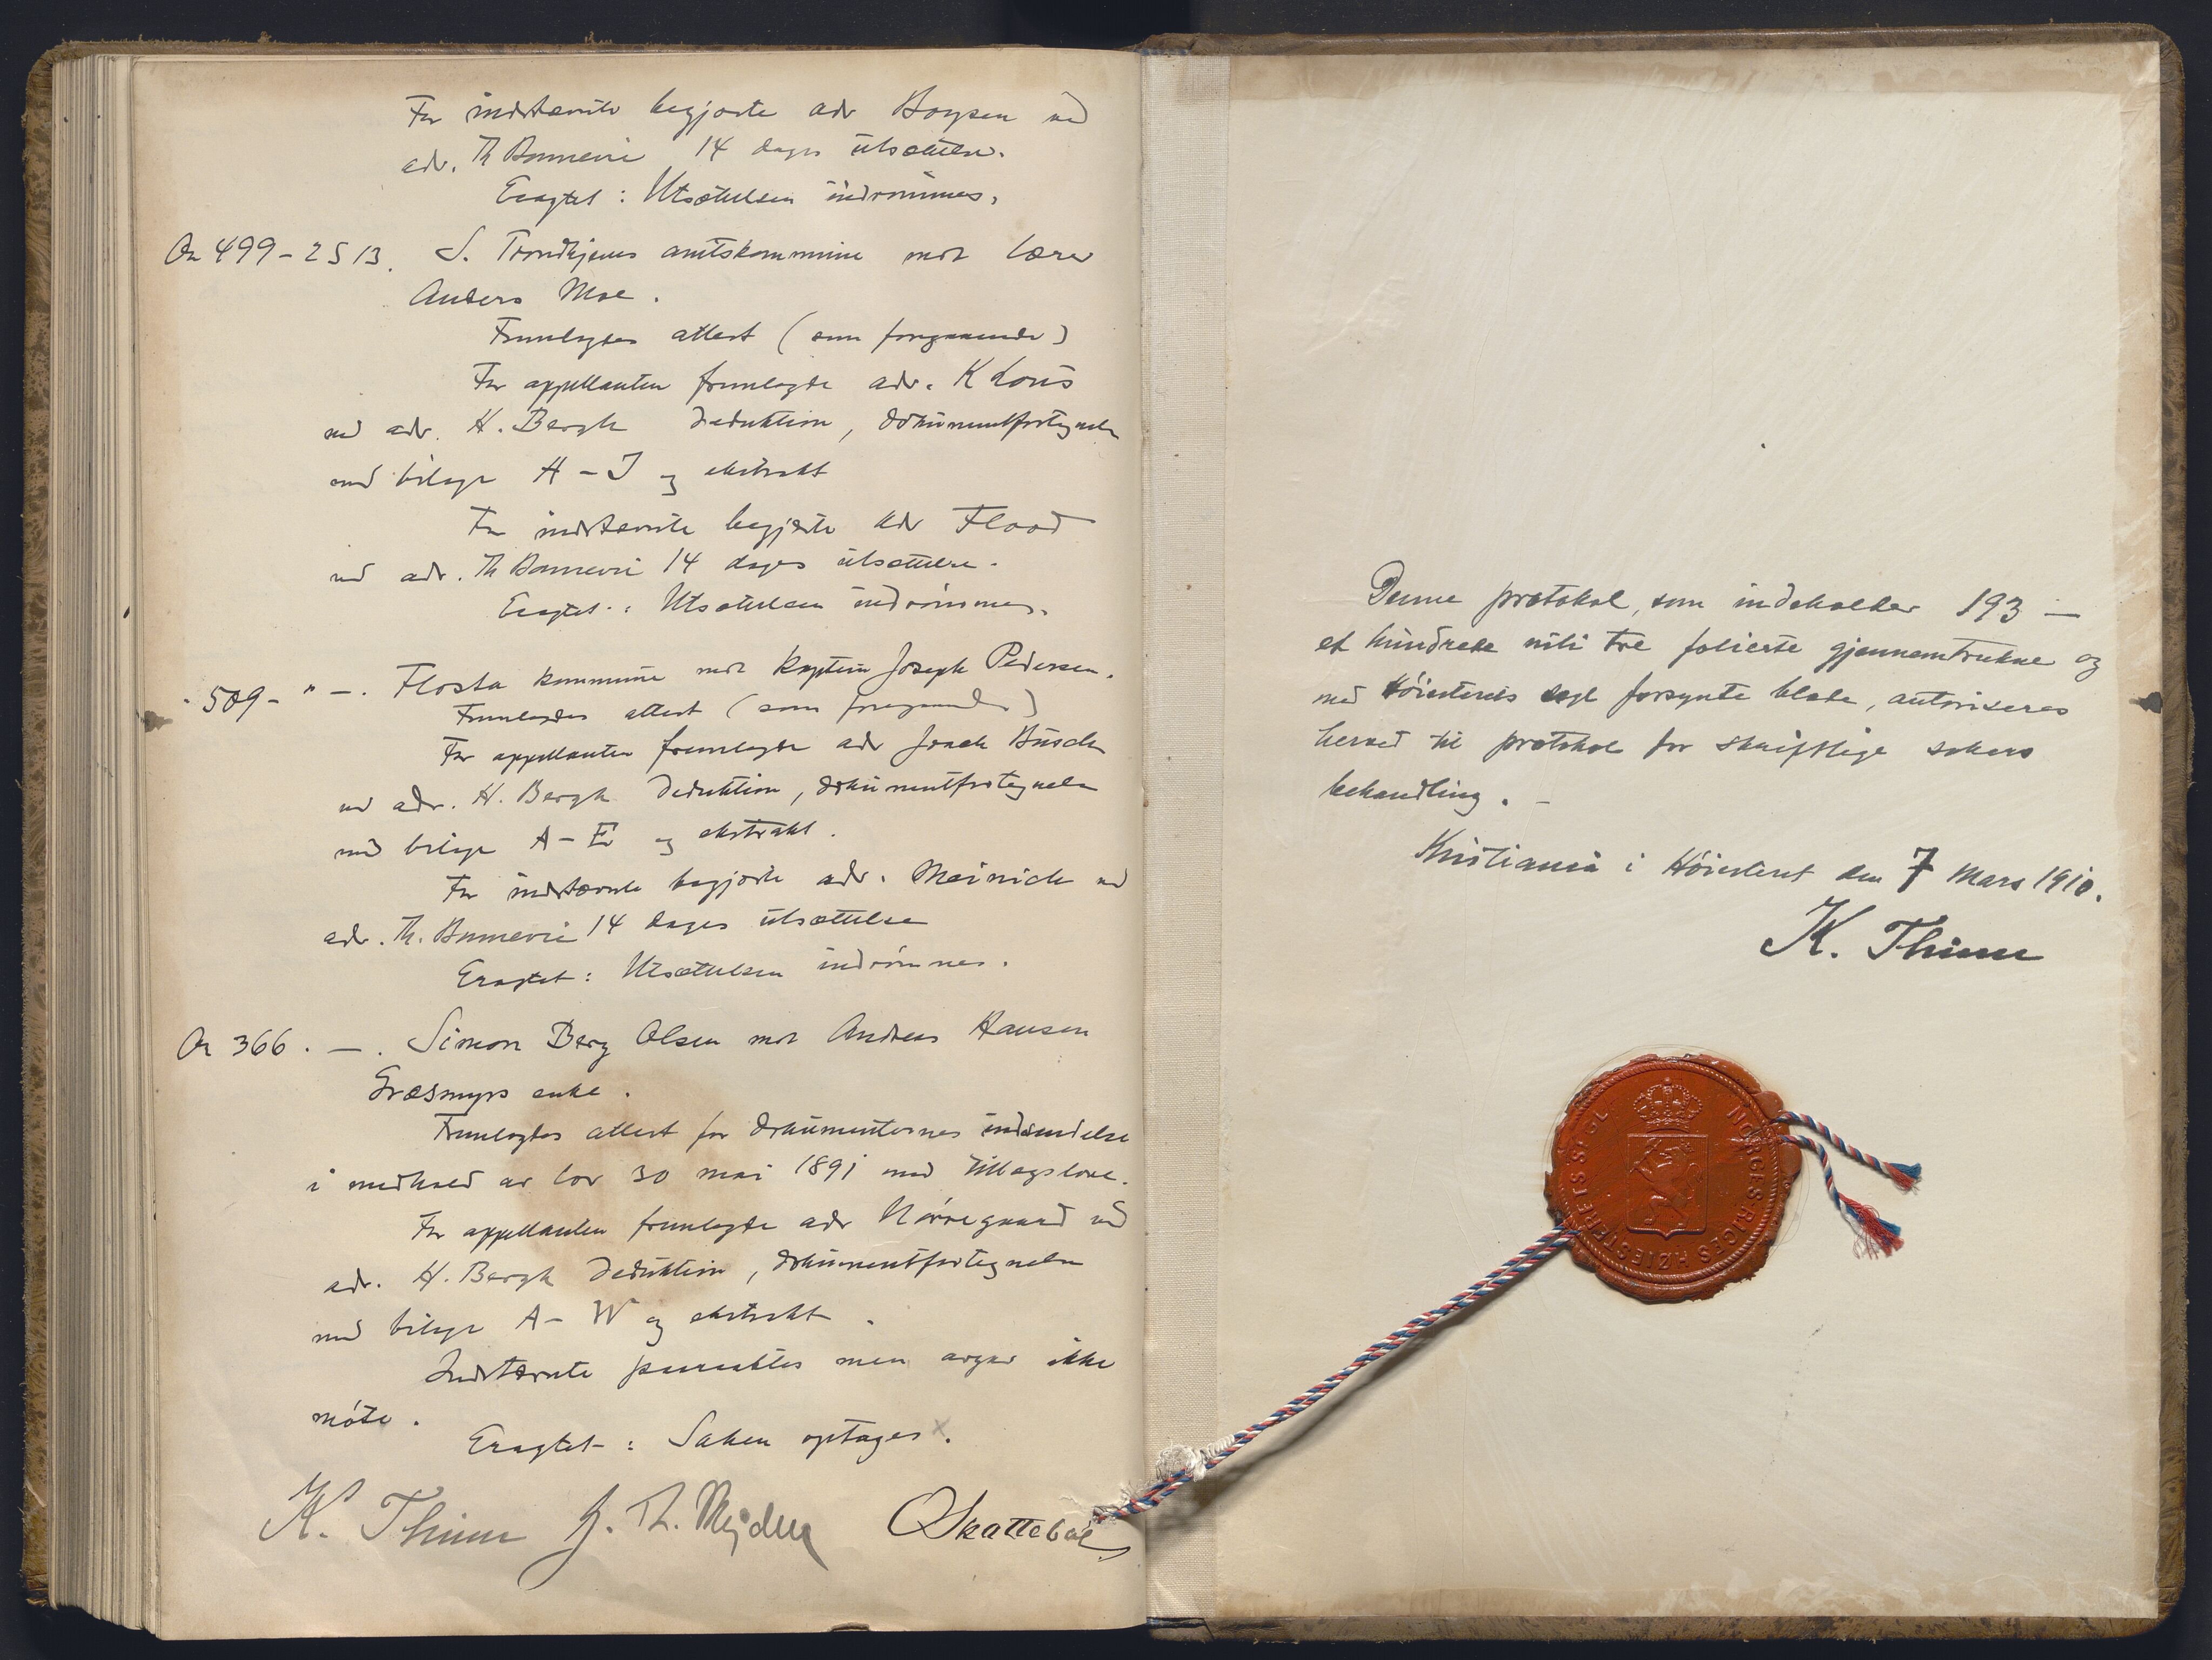 For indstævnte begjærte adv Boysen ved
adv. Th Bonnevie 14 dages utsættelse.
Eragtet : Utsættelsen indrømmes.
Or 499 - 2513. S. Trondhjems amtskommune mot lærer
Anders Moe.
Fremlagdes attest (som foregaaende)
For appellanten fremlagde adv. K Lous
ved adv. H. Bergh deduktion, dokumentfortegnelse
med bilage A - I og ekstrakt
For indstævnte begjærte adv Flood
ved adv. Th Bonnevie 14 dages utsættelse.
Eragtet : Utsættelsen indrømmes.
- 509 - " - . Flosta kommune mot kaptein Joseph Pedersen.
Fremlagdes attest (som foregaaende)
For appellanten fremlagde adv Busch
ved adv. H. Bergh deduktion, dokumentfortegnelse
med bilage A - E og ekstrakt.
For indstævnte begjærte adv. Meinich ved
adv. Th. Bonnevie 14 dages utsættelse
Eragtet : Utsættelsen indrømmes.
Or 366 . - . Simon Berg Olsen mot Andreas Hansen
Græsmyrs enke.
Fremlagdes attest for dokumenternes indsendelse
i medhold av lov 30 mai 1891 med tillægslove.
For appellanten fremlagde adv Nørregaard ved
adv. H. Bergh deduktion, dokumentfortegnelse
med bilage A - W og ekstrakt.
Indstævnte paaraabtes men avgav ikke
møte.
Eragtet : Saken optages x.
K. Thinn J. Th. Mejdell O Skattebøl
Denne protokol, som indeholder 193 —
et hundrede nitti tre folierte gjennemtrukne og
med Høiesterets segl forsynte blade, autoriseres
herved til protokol for skriftlige sakers
behandling. —
Kristiania i Høiesteret den 7 Mars 1910.
K. Thinn
NORGES RIGES HØIESTERETS SEGL